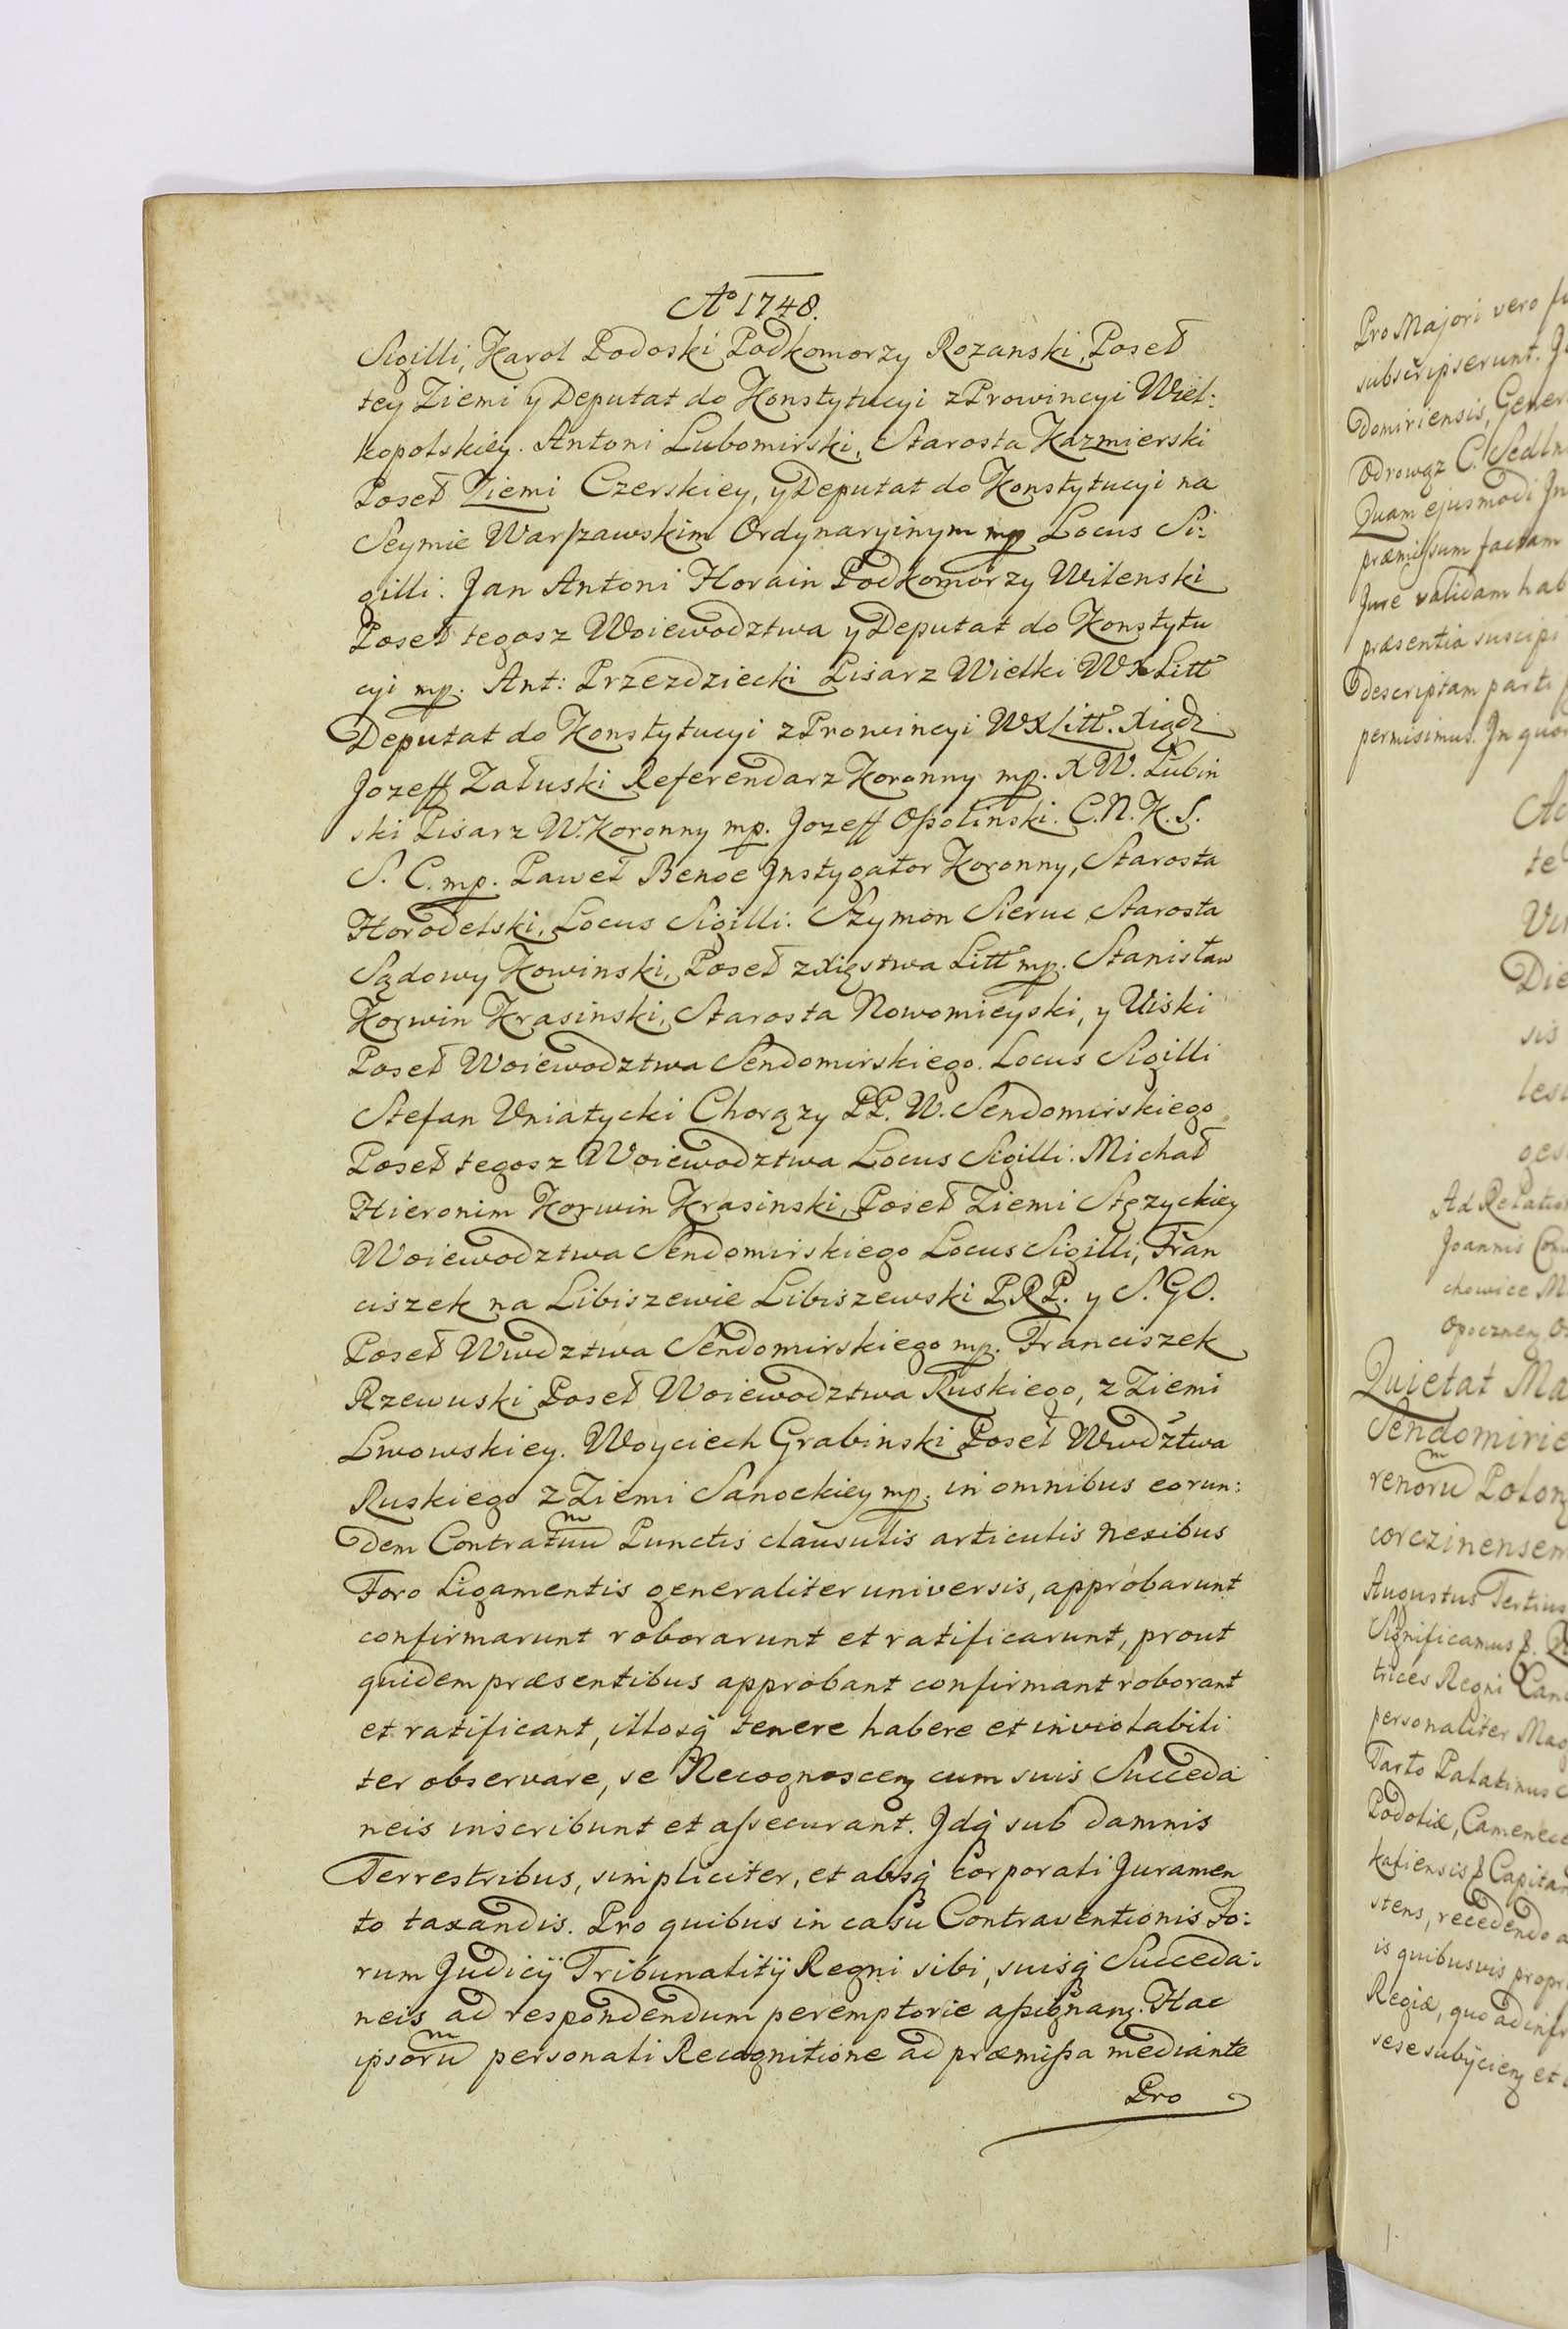 Aº 1748.
Sigilli, Karol Podoski Podkomorzy Rozanski, Poseł
tey Ziemi y Deputat do Konstytucyi z Prowincyi Wiel:
kopolskiey. Antoni Lubomirski, Starosta Kazmierski
Poseł Ziemi Czerskiey, y Deputat do Konstytucyi na
Seymie Warszawskim Ordynaryinym mp Locus Si:
gilli. Jan Antoni Horain Podkomorzy Wilenski
Poseł tegosz Woiewodztwa y Deputat do Konstytu
cyi mp. Ant: Przezdziecki Pisarz Wielki WXLitt
Deputat do Konstytucyi z Prowincyi WXLitt. Xiądz
Jozeff Załuski Referendarz Koronny mp. XW. Łubin
ski Pisarz W. Koronny mp. Jozeff Ossolinski. C.N.K.S.
S. C. mp. Paweł Benoe Jnstygator Koronny, Starosta
Horodelski, Locus Sigilli. Szymon Siruc Starosta
Sądowy Kowinski, Poseł z Xięstwa Litt mp. Stanisław
Korwin Krasinski, Starosta Nowomieyski, y Uiski
Poseł Woiewodztwa Sendomirskiego. Locus Sigilli
Stefan Uniatycki Chorązy PP. W. Sendomirskiego
Poseł tegosz Woiewodztwa Locus Sigilli. Michał
Hieronim Korwin Krasinski, Poseł Ziemi Stęzyckiey
Woiewodztwa Sendomirskiego Locus Sigilli, Fran
ciszek na Libiszewie Libiszewski P.R.P. y S.GO.
Poseł Wwdztwa Sendomirskiego mp. Franciszek
Rzewuski Poseł Woiewodztwa Ruskiego, z Ziemi
Lwowskiey. Woyciech Grabinski Poseł Wwdztwa
Ruskiego z Ziemi Sanockiey mp. in omnibus eorun:
dem Contratuum Punctis clausulis articulis nexibus
Foro Ligamentis generaliter universis, approbarunt
confirmarunt roborarunt et ratificarunt, prout
quidem præsentibus approbant confirmant roborant
et ratificant, illosq tenere habere et inviolabili
ter observare, se Recognoscen cum suis Succeda
neis inscribunt et assecurant. Jdq sub damnis
Terrestribus, simpliciter, et absq Corporali Juramen
to taxandis. Pro quibus in casu Contraventionis Fo:
rum Judicij Tribunalitij Regni sibi, suisq Succeda:
neis ad respondendum peremptorie assignan. Hac
ipsorum personali Recognitione ad præmissa mediante
Pro
Pro Majori vero
subscripserunt.
Domiriensis,
Odrowąz C.
Quam ejusmodi
præmissum factam
Jure validam
præsentia
descriptam parti
permisimus. Jn
Ad
Joannis
Quietat
Augustus Tertius
Significamus
Regni
personaliter
Tarło Palatinus
Podoliæ,
recedendo
is quibusvis
Regiæ, quo ad
sese subijcien et